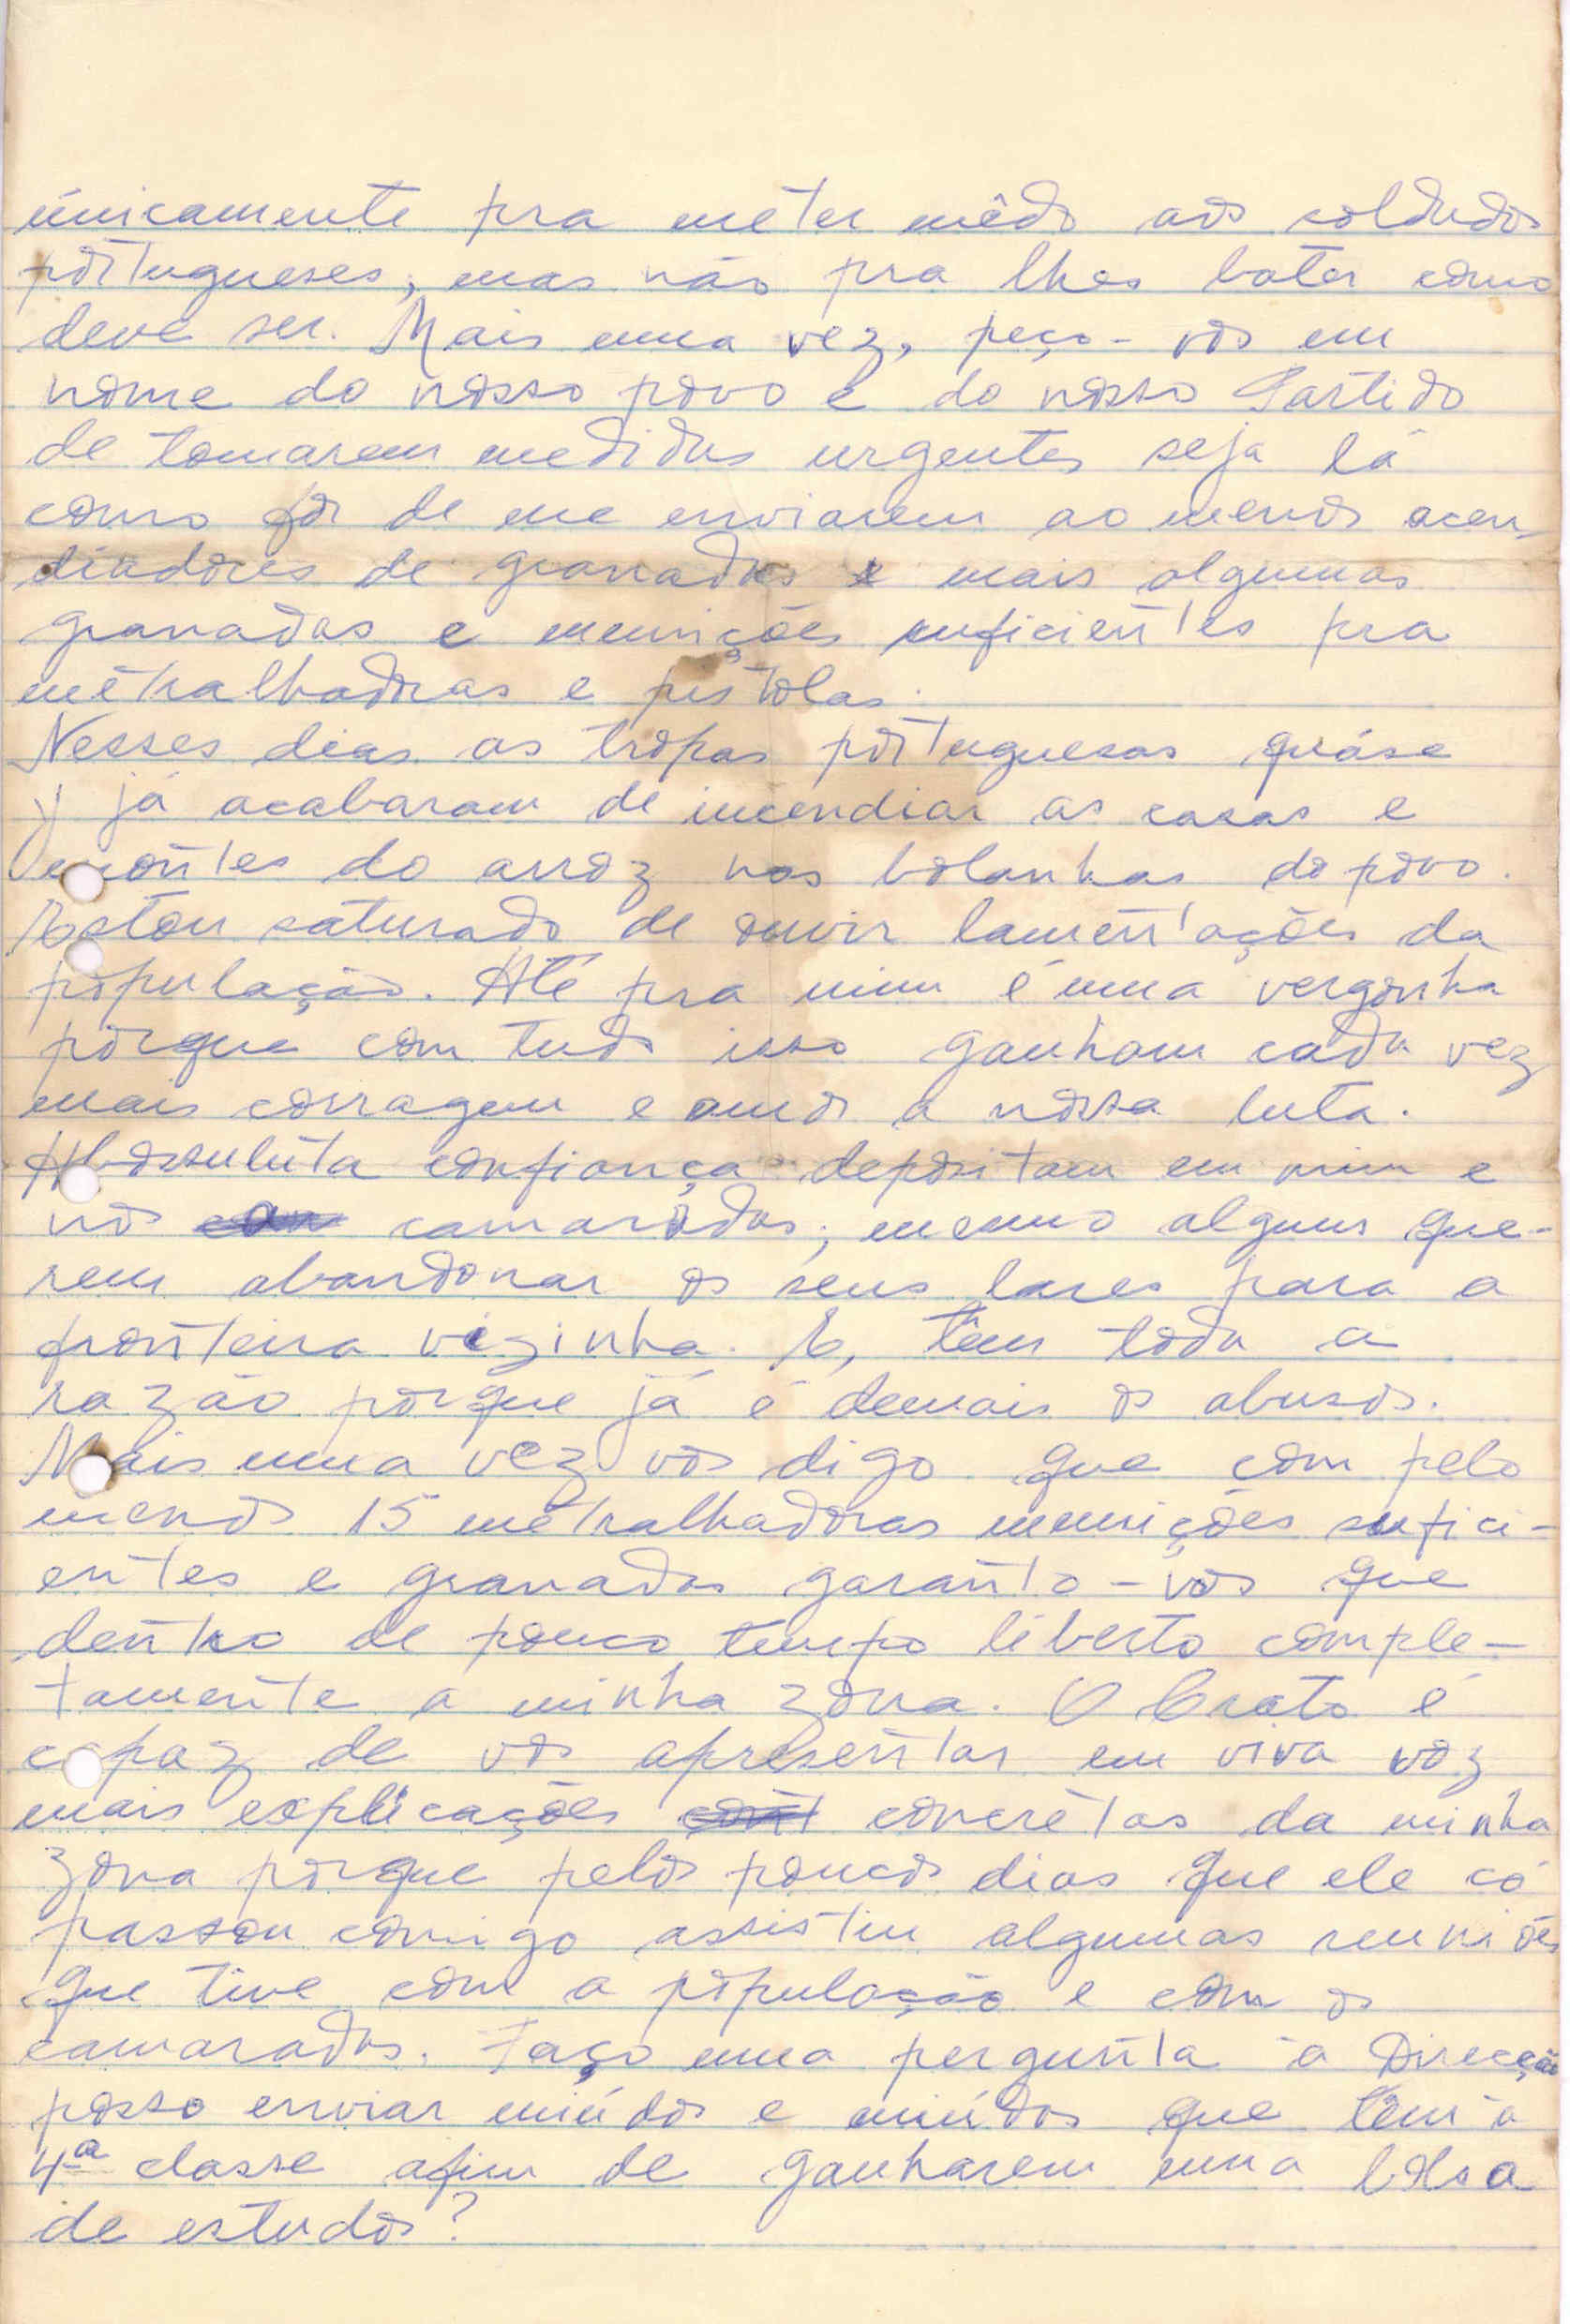 únicamente pra meter mêdo aos soldados
portugueses, mas não pra lhes bater como
deve ser. Mais uma vez, peço-vos em
nome do nosso povo e do nosso Partido
de tomarem medidas urgentes seja lá
como fôr de me enviarem ao menos acen-
diadores de granadas e mais algumas
granadas e munições suficientes pra
métralhadoras e pistolas.
Nesses dias as tropas portuguesas quáse
já acabaram de incendiar as casas e
montes do arroz nas bolanhas do povo.
Estou saturado de ouvir lamentações da
população. Até pra mim é uma vergonha
porque com tudo isso ganham cada vez
mais corragem e amor a nossa luta.
Abossuluta confiança depositam em mim e
nos camaradas; mesmo alguns que-
rem abandonar os seus lares para a
fronteira vizinha. E, têm toda a
razão porque já é demais os abusos.
Mais uma vez vos digo que com pelo
menos 15 métralhadoras munições sufici-
entes e granadas garanto-vos que
dentro de pouco tempo liberto comple-
tamente a minha zona. O Crato é
capaz de vos apresentar em viva voz
mais explicações concrétas da minha
zona porque pelos poucos dias que ele cá
passou comigo assistiu algumas reuniões
que tive com a população e com os
camaradas. Faço uma pergunta á Direcção
posso enviar miúdos e miúdas que têm a
4ª classe afim de ganharem uma bolsa
de estudos?